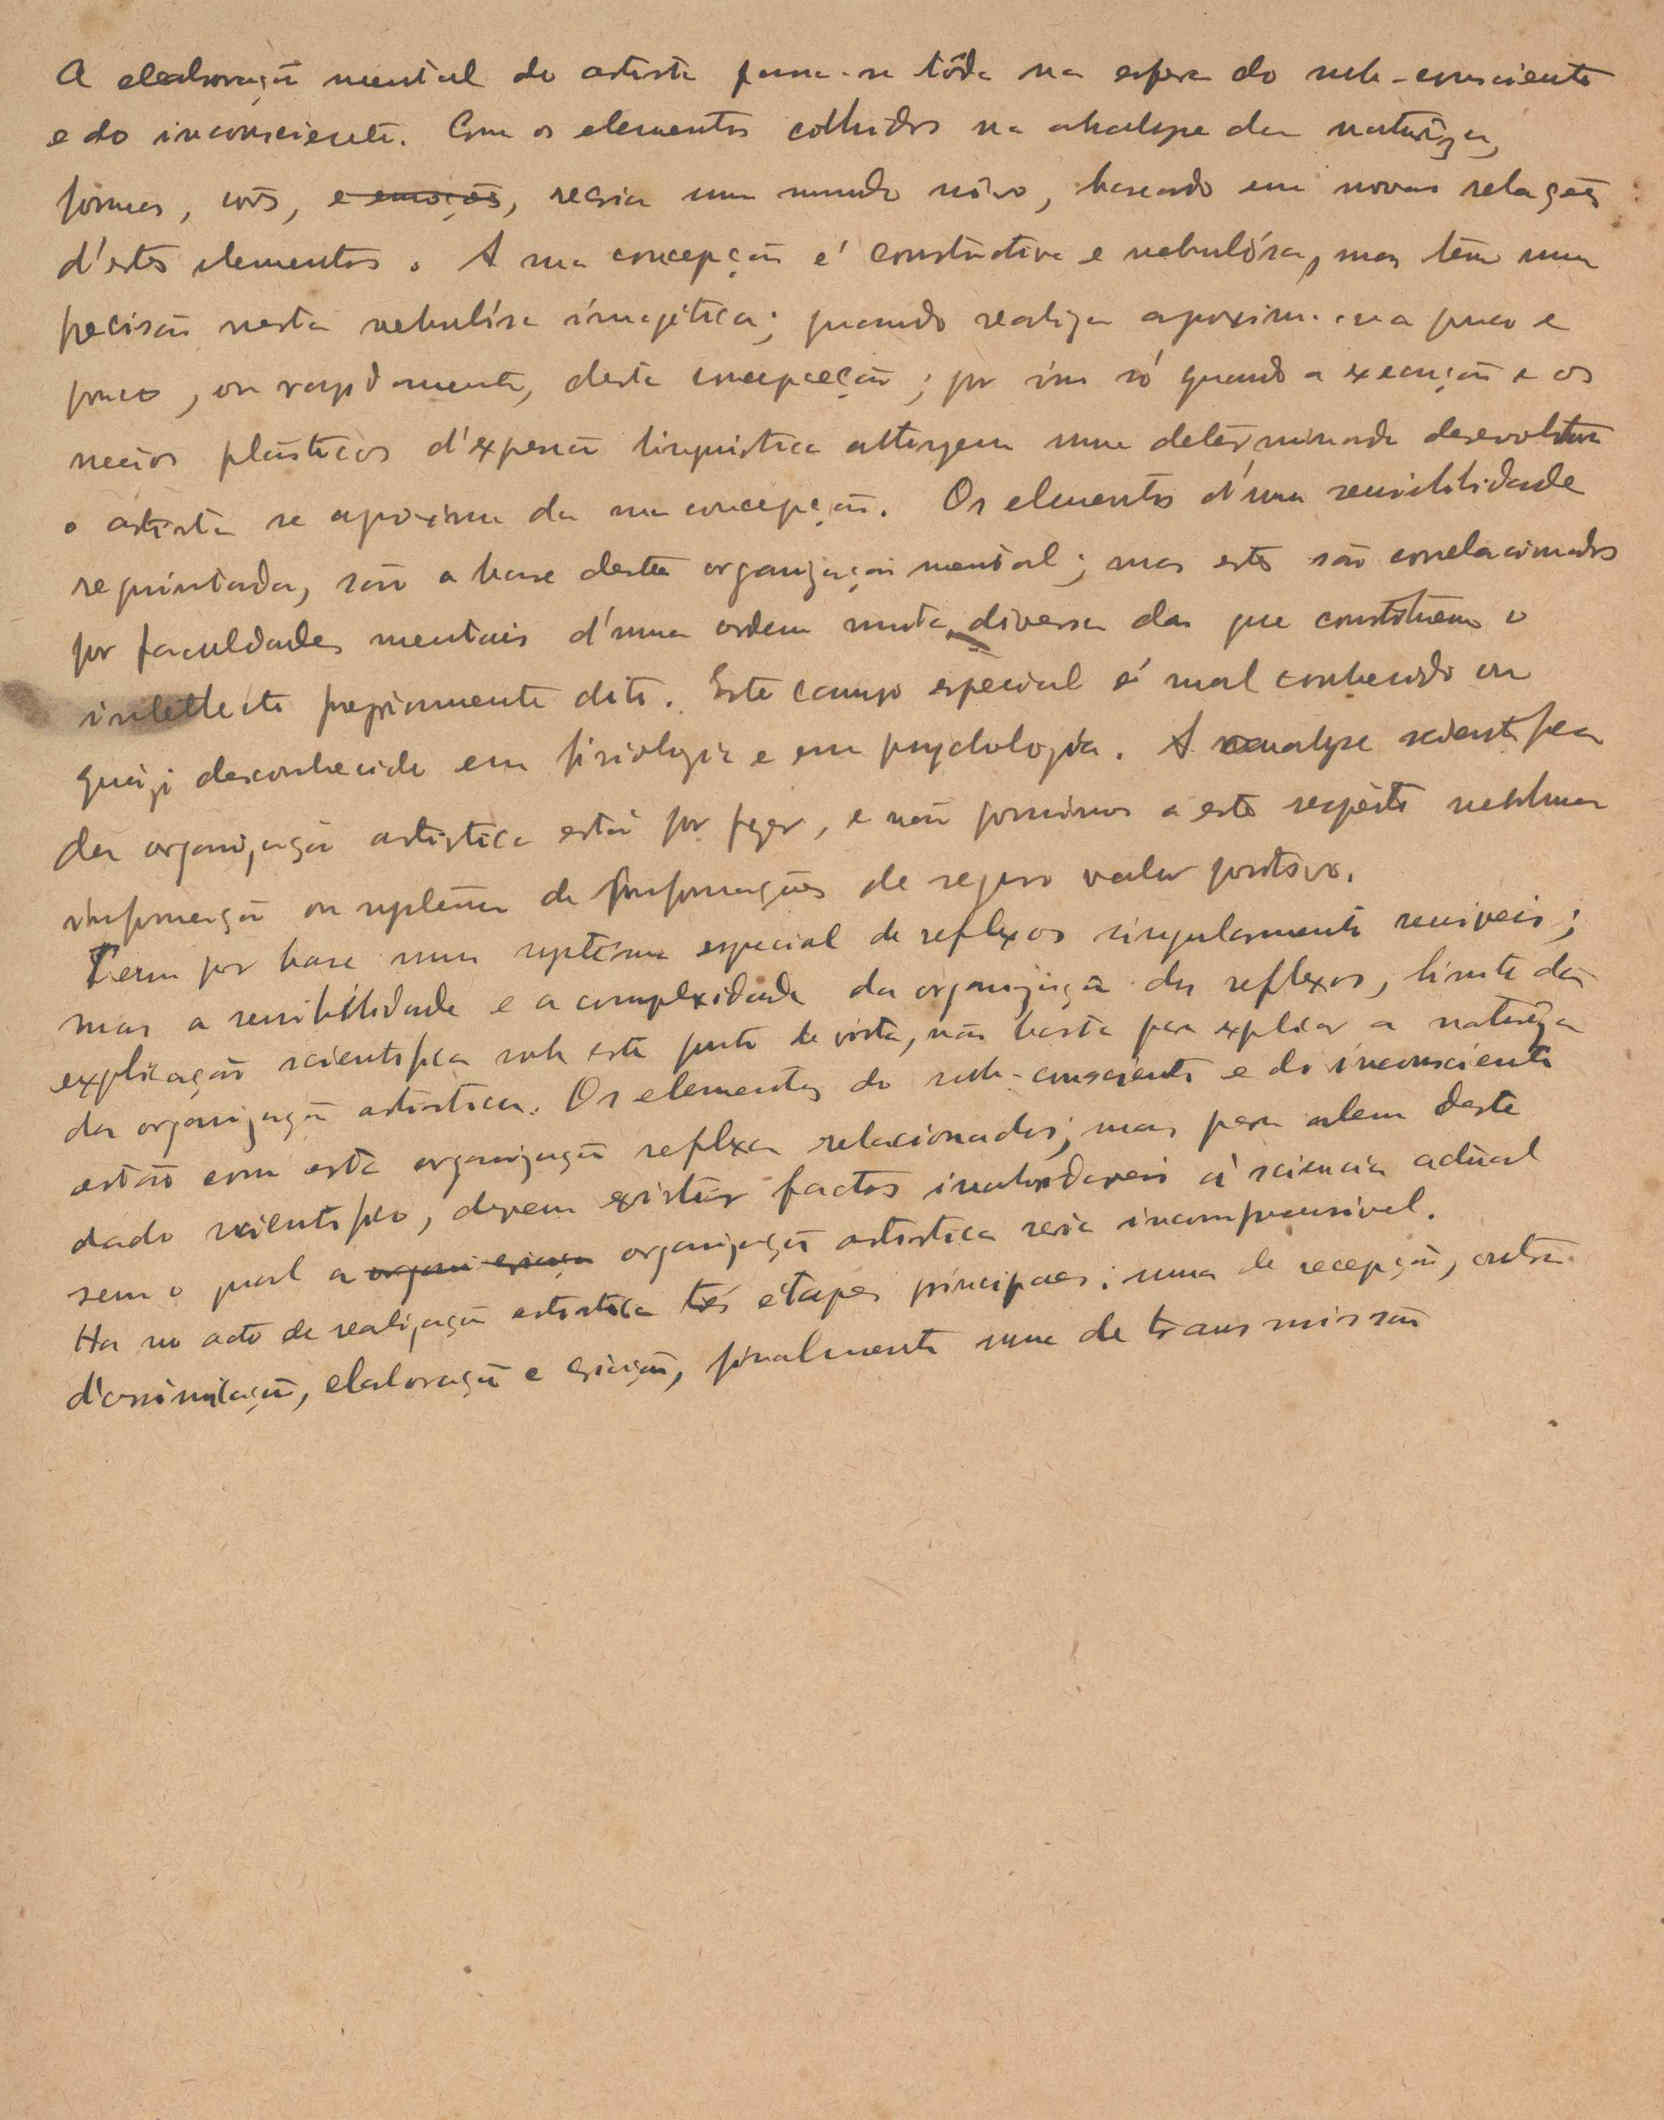 A elaboração mental do artista passa-se tôda na esfera do sub-consciente
e do inconsciente. Com os elementos colhidos na analyse da naturêza,
fórmas, côrs, e emoções, recria um mundo nôvo, baseado em novas relações
d'estes elementos. A sua concepção é constructiva e nebulósa, mas tem uma
precisão nesta nebulósa imagética; quando realiza aproxima-se a pouco e
pouco, ou rapidamente, desta concepção; por isso só quando a execução e os
meios plásticos d'expressão linguistica attingem uma determinada desevoltura
o artista se aproxima da sua concepção. Os elementos d'uma sensibilidade
requintada, são a base desta organização mental; mas estes são correlacionados
por faculdades mentais d'uma ordem muita diversa das que constituem o
intellecto propriamente dito. Este campo especial é mal conhecido ou
quázi desconhecido em fisiologia e em psychologia. A analyse scientifica
da organização artistica está por fazer, e não possuimos a este respeito nenhuma
informação ou systema de informações de seguro valor positivo.
Tem por base um systema especial de reflexos singularmente sensiveis;
mas a sensibilidade e a complexidade da organização dos reflexos, limite da
explicação scientifica sob este ponto de vista, não basta para explicar a naturêza
da organização artistica. Os elementos do sub-consciente e do inconsciente
estão com esta organização reflexa relacionados; mas para alem deste
dado scientifico, devem existir factos inabordaveis á sciencia actual
sem o qual a organização artistica seria incomprensivel.
Ha no acto de realização artistica três étapes principaes: uma de recepção, outra
d'assimilação, elaboração e criação, finalmente uma de transmissão